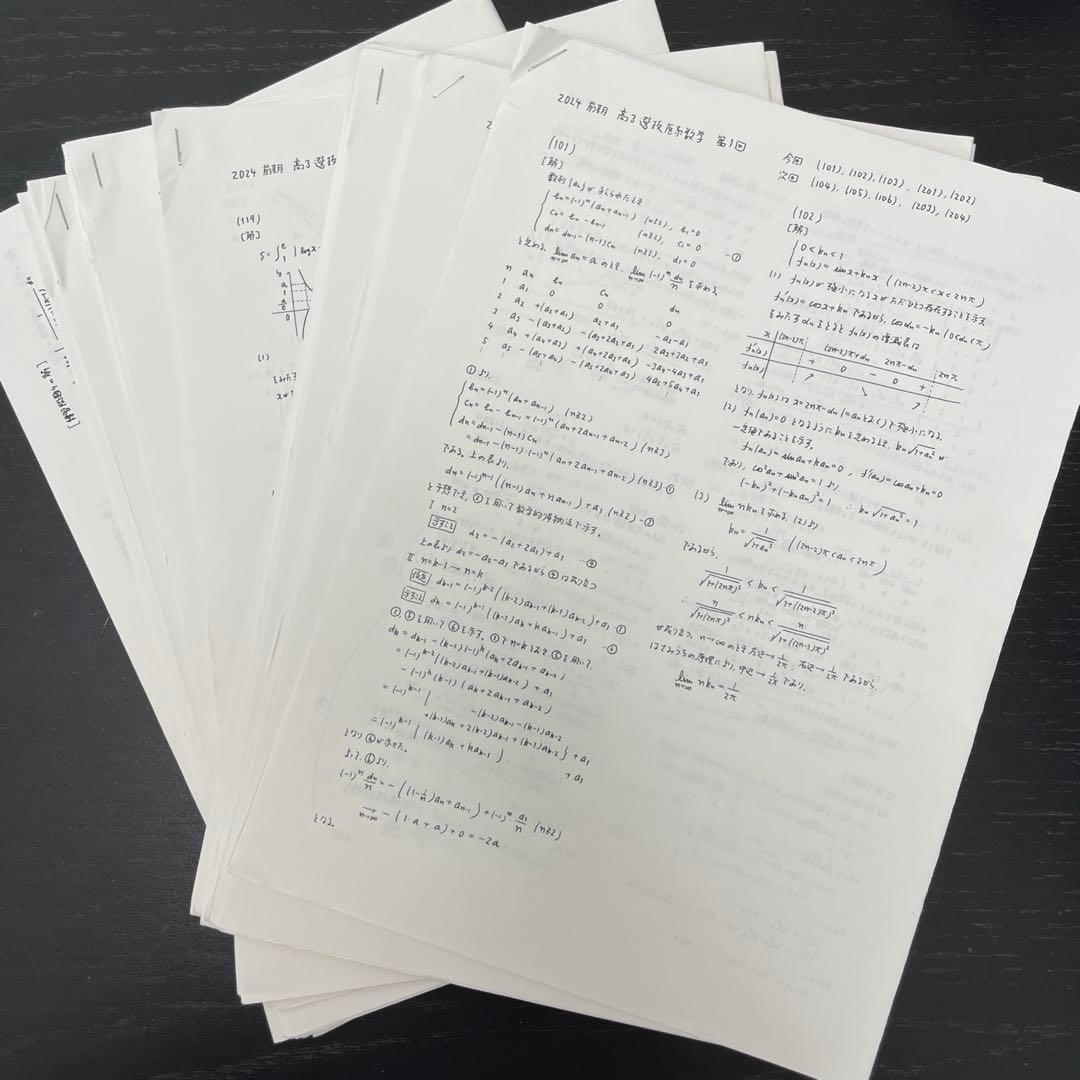 2024 前期 高3選抜医系数学 第1回
今回 (101), (102), (103), (201), (202)
次回 (104), (105), (106), (203), (204)
(101)
[解]
数列{an}が与えられたとき
bn=(-1)^n(an+an-1) (n≧2), b1=0
cn=bn-bn-1 (n≧2), c1=0
dn=dn-1-(n-1)cn (n≧2), d1=0 …①
と定める. lim n→∞ an=a のとき, lim n→∞ (-1)^n dn/n を求める.
n an bn cn dn
1 a1 0 0 0
2 a2 +(a2+a1) a2+a1 -a2-a1
3 a3 -(a3+a2) -(a3+2a2+a1) 2a3+3a2+a1
4 a4 +(a4+a3) +(a4+2a3+a2) -3a4-4a3+a1
5 a5 -(a5+a4) -(a5+2a4+a3) 4a5+5a4+a1
①より,
bn=(-1)^n(an+an-1) (n≧2)
cn=bn-bn-1=(-1)^n(an+2an-1+an-2) (n≧3)
dn=dn-1-(n-1)cn
=dn-1-(n-1)・(-1)^n(an+2an-1+an-2) (n≧3) …②
である. 上の表より,
dn=(-1)^{n-1}((n-1)an+nan-1)+a1 (n≧2) …③
と予想でき, ②を用いて数学的帰納法で示す.
I n=2
示すこと d2=-(a2+2a1)+a1 …④
上の表より d2=-a2-a1 であるから④は成り立つ
II n=k-1→n=k
仮定 dk-1=(-1)^{k-2}((k-2)ak-1+(k-1)ak-2)+a1 …⑤
示すこと dk=(-1)^{k-1}((k-1)ak+kak-1)+a1 …⑥
②, ⑤を用いて⑥を示す. ②で n=k とおき, ⑤を用いて,
dk=dk-1-(k-1)(-1)^k(ak+2ak-1+ak-2)
=(-1)^{k-2}((k-2)ak-1+(k-1)ak-2)+a1
-(-1)^k(k-1)(ak+2ak-1+ak-2)
=(-1)^{k-1}{ -(k-2)ak-1-(k-1)ak-2
+(k-1)ak+2(k-1)ak-1+(k-1)ak-2 }+a1
=(-1)^{k-1}{(k-1)ak+kak-1}+a1
となり⑥が示せた.
よって, ③より,
(-1)^n dn/n=-((1-1/n)an+an-1)+(-1)^n a1/n (n≧2)
→ n→∞ -(1・a+a)+0=-2a
となる.
(102)
[解]
0<kn<1
fn(x)=sinx+knx ((2n-2)π<x<2nπ)
(1) fn(x)が極小になるxがただひとつ存在することを示す.
f'n(x)=cosx+kn であるから, cosαn=-kn (0<αn<π)
をみたすαnをとると fn(x)の増減表は
x (2n-2)π (2n-2)π+αn 2nπ-αn 2nπ
f'n(x) + 0 - 0 +
fn(x) ↗ ↘ ↗
となり, fn(x)は x=2nπ-αn(=anとおく)で極小になる.
(2) fn(an)=0 となるように knを定めるとき, kn√1+an² が
一定値であることを示す.
fn(an)=sinan+knan=0, f'n(an)=cosan+kn=0
であり, cos²an+sin²an=1 より
(-kn)²+(-knan)²=1 ∴ kn√1+an²=1
(3) lim n→∞ nkn を求める. (2)より
kn=1/√1+an² ((2n-2)π<an<2nπ)
であるから,
1/√1+(2nπ)² < kn < 1/√1+((2n-2)π)²
∴ n/√1+(2nπ)² < nkn < n/√1+((2n-2)π)²
が成り立つ. n→∞のとき 左辺→1/2π, 右辺→1/2π であるから,
はさみうちの原理により, 中辺→1/2π であり,
lim n→∞ nkn=1/2π
2024 前期 高3選抜
(119)
[解]
S=∫
(1)
をみたす